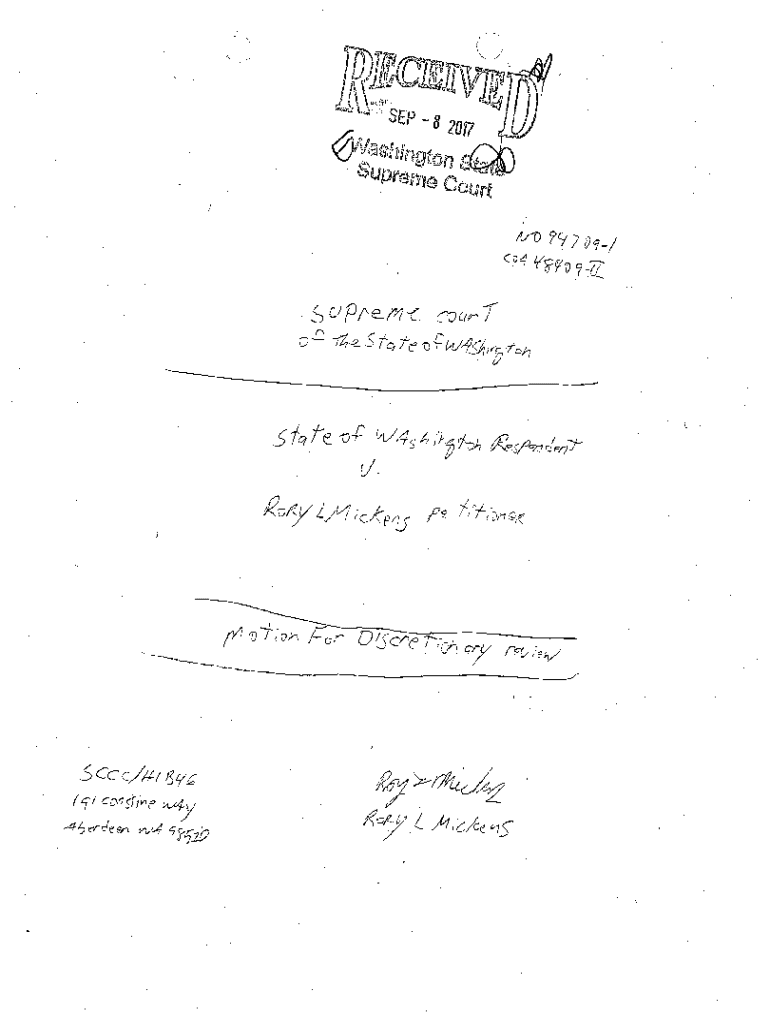 RECEIVED
SEP - 8 2017
Washington State
Supreme Court
NO 94709-1
COA 48409-II
Supreme court
of the State of WAshington
State of WAshington Respondent
v.
Rory L Mickens petitioner
Motion For Discretionary review
SCCC/H1B46
191 constine way
Aberdeen WA 98520
Rory L Mickens
Rory L Mickens